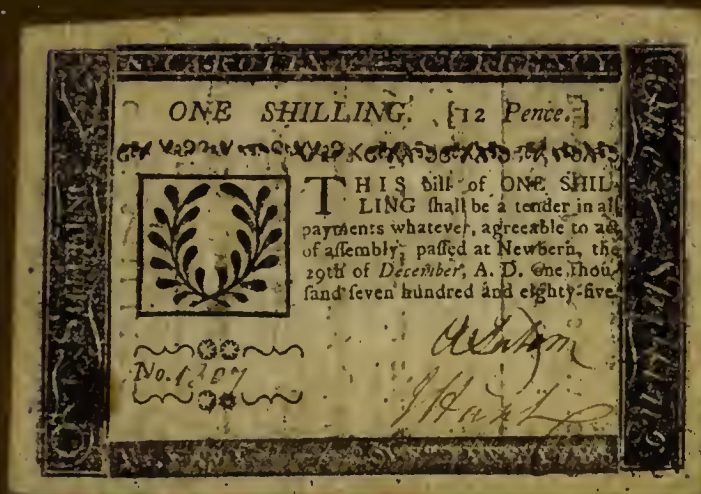 N. CAROLINA CURRENCY.
ONE SHILLING. [12 Pence.]
THIS bill of ONE SHIL-
LING ſhall be a tender in all
payments whatever, agreeable to act
of aſſembly, paſſed at Newbern, the
29th of December, A. D. One Thou-
ſand ſeven hundred and eighty-five.
No. 1307
J Hunt
One Shilling